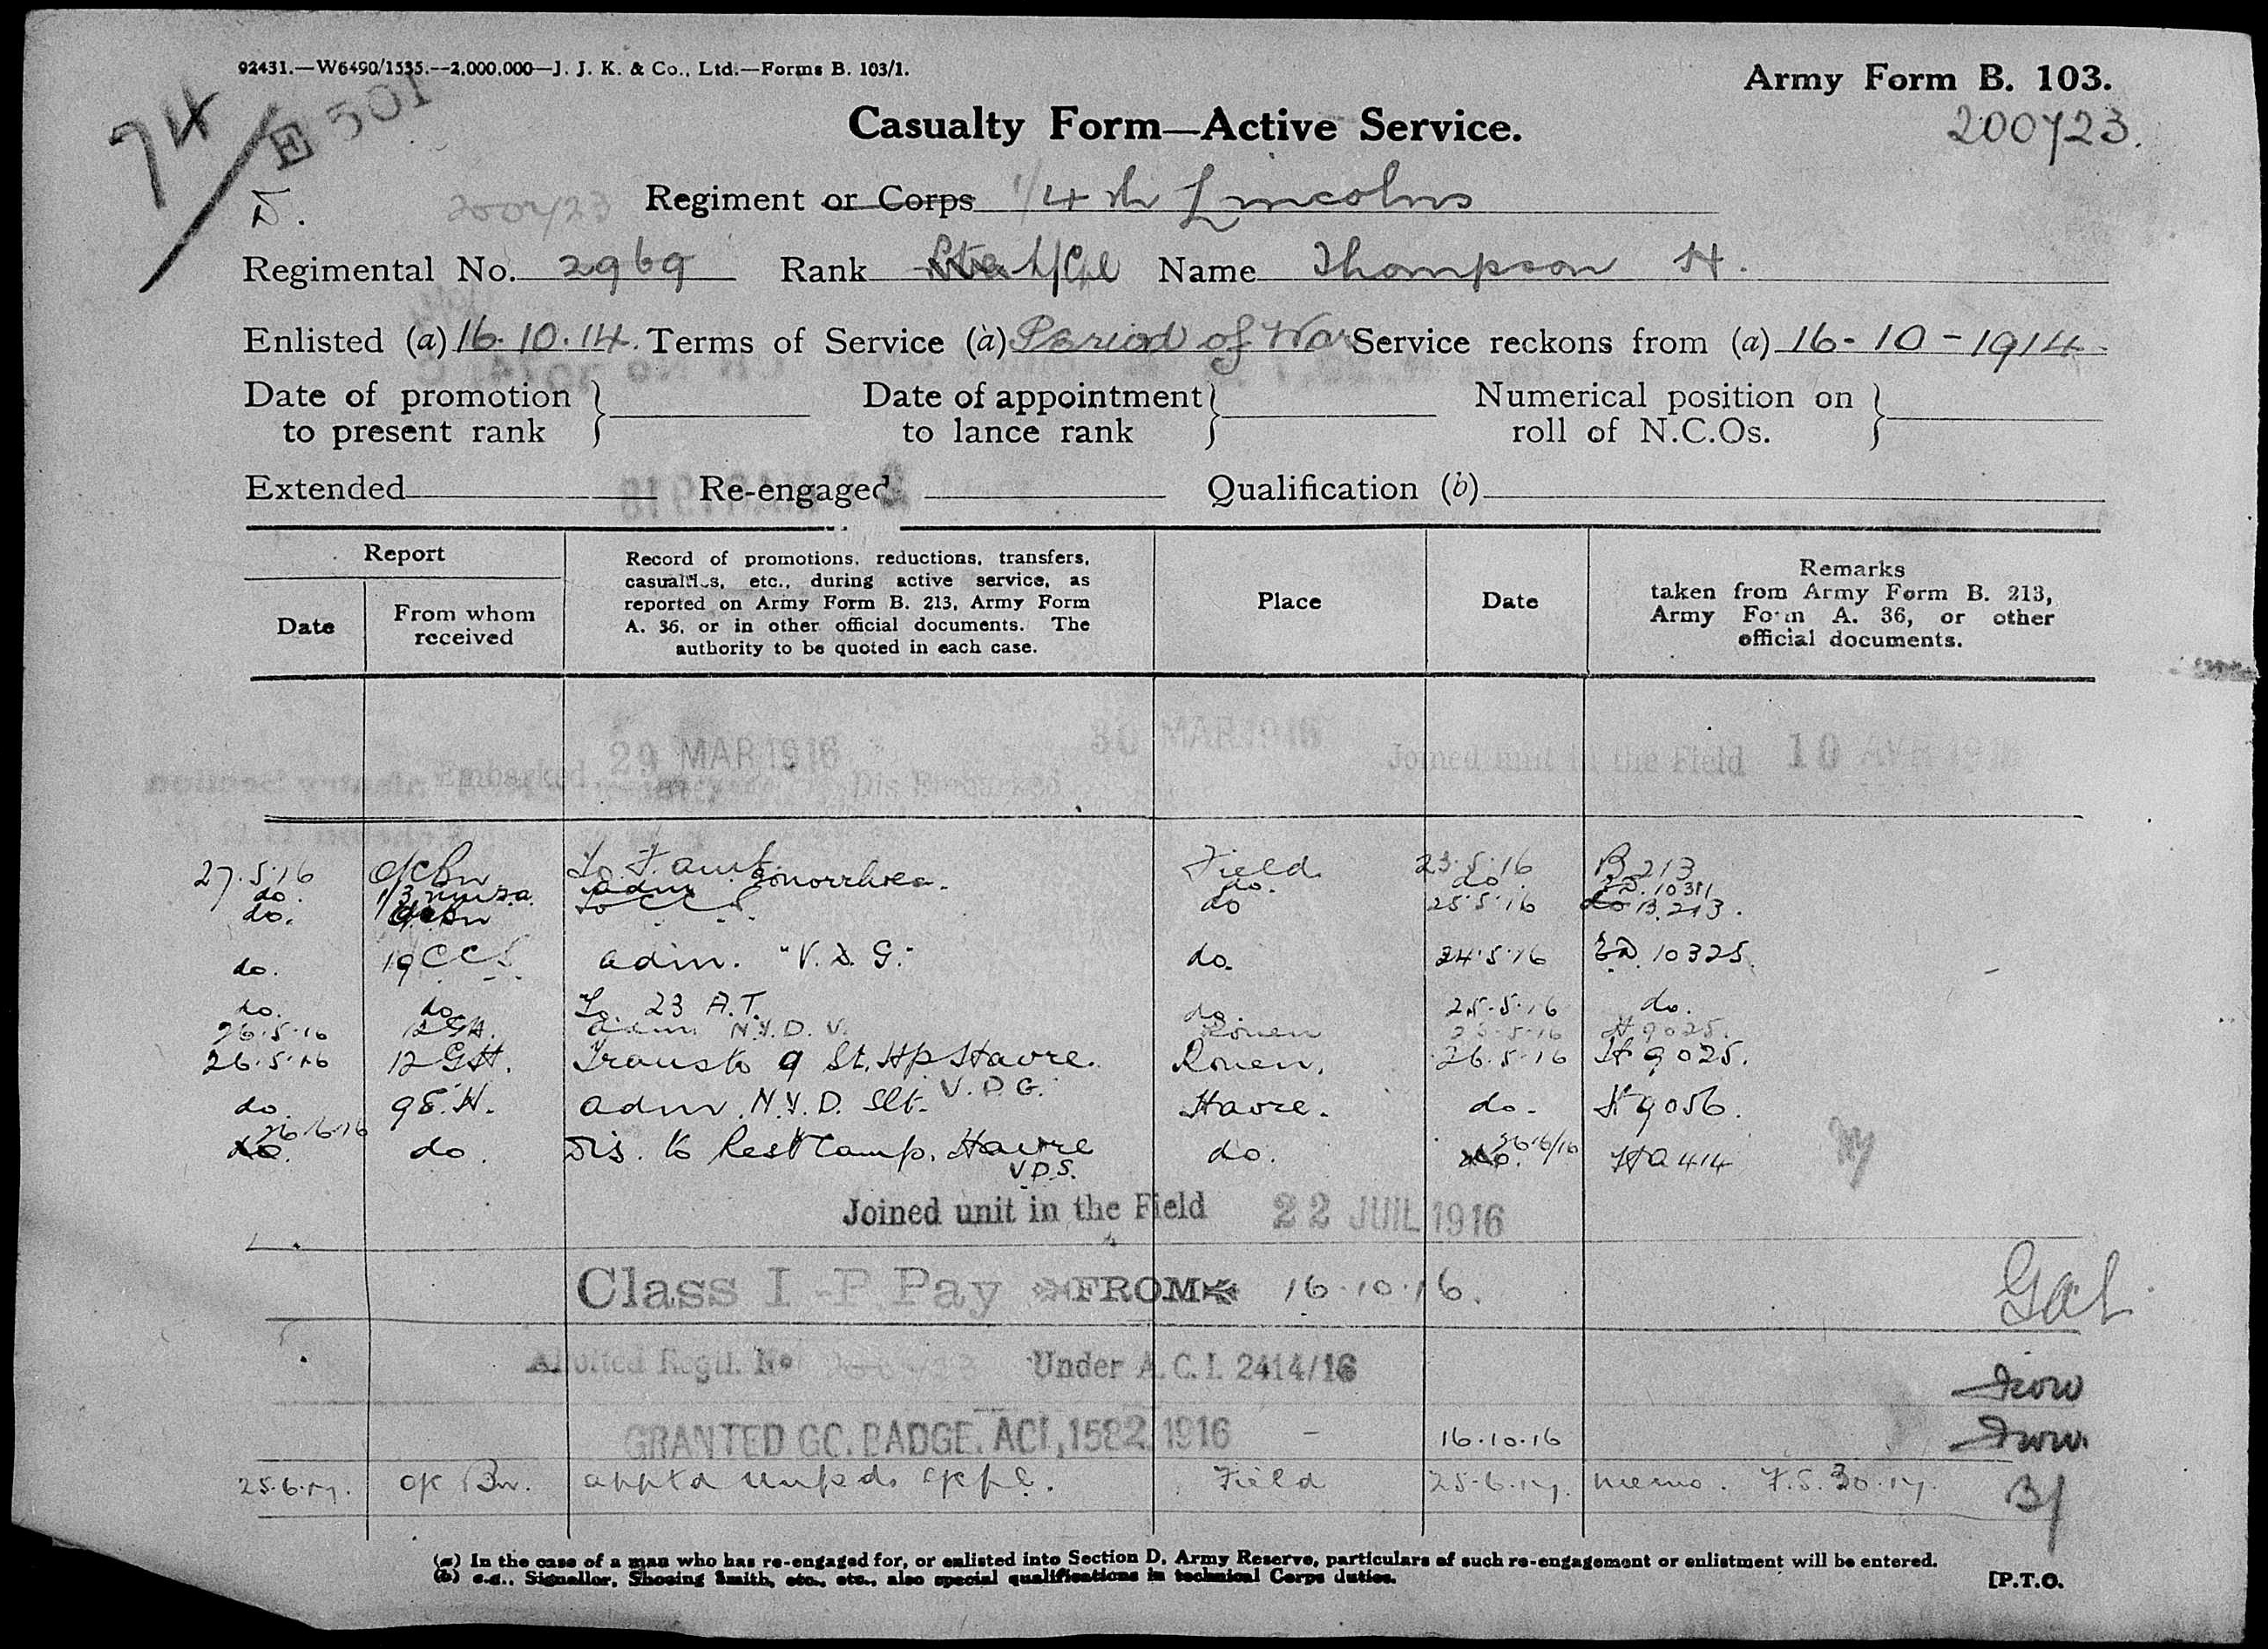 92431.—W6490/1535.—2,000,000—J. J. K. & Co., Ltd.—Forms B. 103/1.
Army Form B. 103.
74
E 501
Casualty Form—Active Service.
200723.
D.
200723
Regiment or Corps 1/4th Lincolns
Regimental No. 2969 Rank Pte L/Cpl Name Thompson H.
Enlisted (a) 16.10.14. Terms of Service (a) Period of War Service reckons from (a) 16-10-1914
Date of promotion to present rank
Date of appointment to lance rank
Numerical position on roll of N.C.Os.
Extended Re-engaged Qualification (b)
Report
Date
From whom received
Record of promotions, reductions, transfers, casualties, etc., during active service, as reported on Army Form B. 213, Army Form A. 36, or in other official documents. The authority to be quoted in each case.
Place
Date
Remarks taken from Army Form B. 213, Army Form A. 36, or other official documents.
Embarked 29 MAR 1916 Dis Embarked 30 MAR 1916 Joined unit in the Field 10 AVR 1916
27.5.16 O/C Bn To F. Amb. Field 23.5.16 B 213
do. adm Gonorrhoea. do. do.
do. O/C Bn To CCS do 25.5.16 do B.213.
do. 19 CCS adm. "V.D.G." do. 24.5.16 10325.
do. do. To 23 A.T. do. 25.5.16 do.
26.5.16 12 GH. adm N.Y.D. V. Rouen 25.5.16 H 9025.
26.5.16 12 GH. Trans to 9 St. Hp Havre. Rouen. 26.5.16 H 9025.
do. 9 S.H. adm N.Y.D. Slt. V.D.G. Havre. do. H 9056.
do. 26/6/16 do. Dis. to Rest Camp. Havre V.D.S. do. do. 26/6/16 HA 414
Joined unit in the Field 22 JUIL 1916
Class I P. Pay FROM 16.10.16.
Allotted Regtl. No 200723 Under A.C.I. 2414/16
GRANTED GC. BADGE. ACI, 1582 1916 – 16.10.16
25.6.17. O/C Bn. apptd unpd L/Cpl. Field 25.6.17. memo. F.S. 30.17.
(a) In the case of a man who has re-engaged for, or enlisted into Section D, Army Reserve, particulars of such re-engagement or enlistment will be entered.
(b) e.g., Signaller, Shoeing Smith, etc., etc., also special qualifications in technical Corps duties.
[P.T.O.